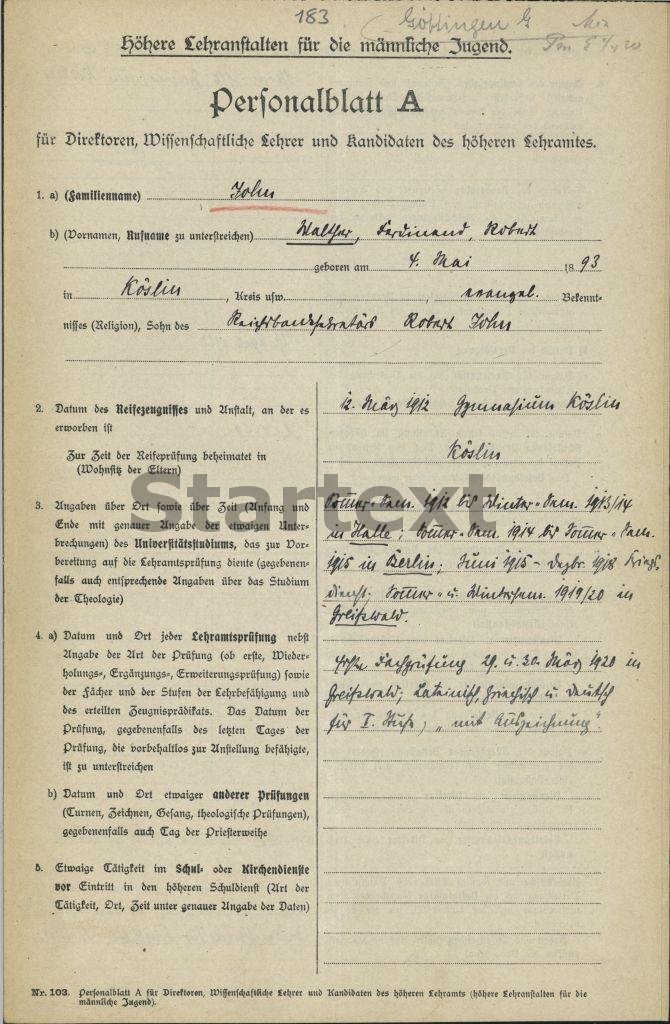 183.
Göttingen G
Höhere Lehranstalten für die männliche Jugend.
Personalblatt A
für Direktoren, Wissenschaftliche Lehrer und Kandidaten des höheren Lehramtes.
1. a) (Familienname) John
b) (Vornamen, Rufname zu unterstreichen) Walther, Ferdinand, Robert
geboren am 4. Mai 1893
in Köslin, Kreis usw. , evangel. Bekennt-
nisses (Religion), Sohn des Reichsbanksekretärs Robert John
2. Datum des Reifezeugnisses und Anstalt, an der es
erworben ist
12. März 1912 Gymnasium Köslin
Zur Zeit der Reifeprüfung beheimatet in
(Wohnsitz der Eltern)
Köslin
Startext
3. Angaben über Ort sowie über Zeit (Anfang und
Ende mit genauer Angabe der etwaigen Unter-
brechungen) des Universitätsstudiums, das zur Vor-
bereitung auf die Lehramtsprüfung diente (gegebenen-
falls auch entsprechende Angaben über das Studium
der Theologie)
Sommer-Sem. 1912 bis Winter-Sem. 1913/14
in Halle; Sommer-Sem. 1914 bis Sommer-Sem.
1915 in Berlin; Juni 1915 - Dezbr. 1918 Kriegs-
dienst; Sommer- u. Wintersem. 1919/20 in
Greifswald.
4. a) Datum und Ort jeder Lehramtsprüfung nebst
Angabe der Art der Prüfung (ob erste, Wieder-
holungs-, Ergänzungs-, Erweiterungsprüfung) sowie
der Fächer und der Stufen der Lehrbefähigung und
des erteilten Zeugnisprädikats. Das Datum der
Prüfung, gegebenenfalls des letzten Tages der
Prüfung, die vorbehaltlos zur Anstellung befähigte,
ist zu unterstreichen
Erste Fachprüfung 29. u. 30. März 1920 in
Greifswald; Lateinisch, Griechisch u. Deutsch
für I. Stufe; „mit Auszeichnung".
b) Datum und Ort etwaiger anderer Prüfungen
(Turnen, Zeichnen, Gesang, theologische Prüfungen),
gegebenenfalls auch Tag der Priesterweihe
5. Etwaige Tätigkeit im Schul- oder Kirchendienste
vor Eintritt in den höheren Schuldienst (Art der
Tätigkeit, Ort, Zeit unter genauer Angabe der Daten)
Nr. 103. Personalblatt A für Direktoren, Wissenschaftliche Lehrer und Kandidaten des höheren Lehramts (höhere Lehranstalten für die
männliche Jugend).